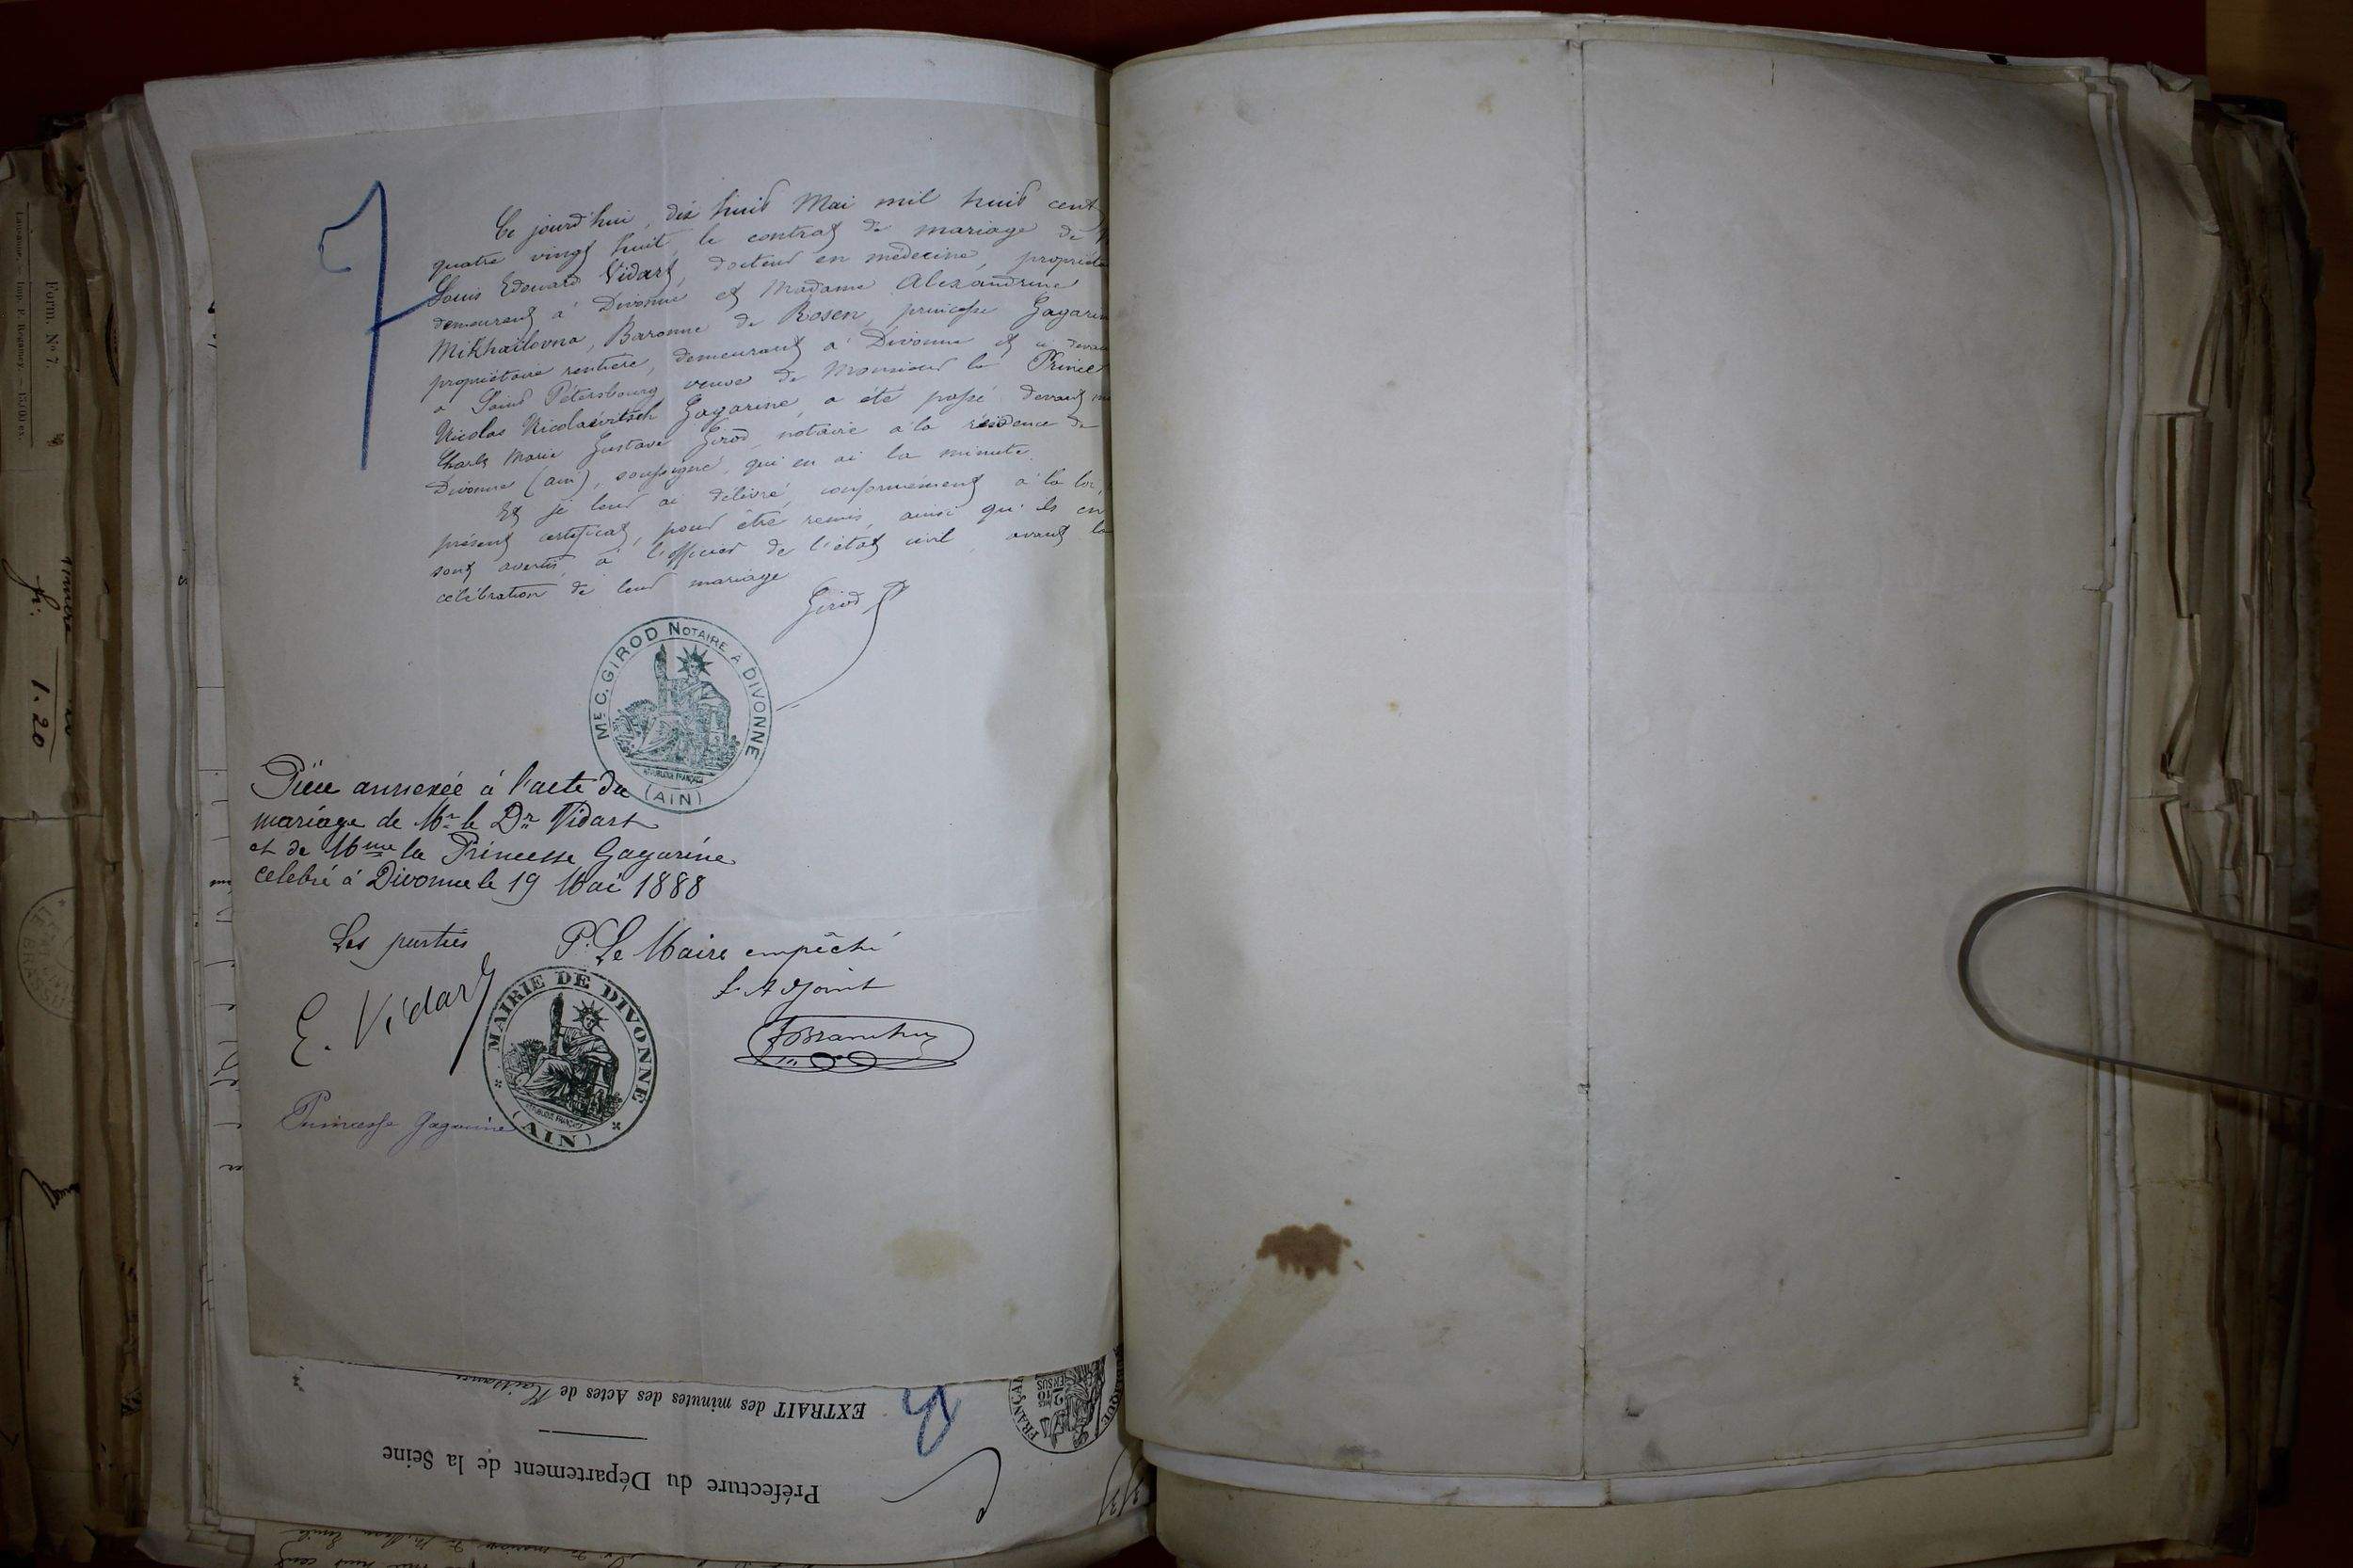 7
Ce jourd'hui, dix huit Mai mil huit cent
quatre vingt huit, le contrat de mariage de
Louis Edouard Vidart, docteur en médecine,
demeurant à Divonne et Madame Alexandrine
Mikhaïlovna, Baronne de Rosen, princesse
propriétaire rentière, demeurant à Divonne et
à Saint Pétersbourg veuve de Monsieur le Prince
Nicolas Nicolaévitsch Gagarine, a été passé devant
Charles Marie Gustave Girod, notaire à la résidence de
Divonne (ain), soussigné, qui en ai la minute.
Et je leur ai délivré, conformément à la loi,
présent certificat, pour être remis, ainsi qu'ils en
sont avertis, à l'officier de l'état civil, avant la
célébration de leur mariage
Girod
Me C. GIROD NOTAIRE A DIVONNE
REPUBLIQUE FRANÇAISE
(AIN)
Pièce annexée à l'acte du
mariage de Mr le Dr Vidart
et de Mme la Princesse Gagarine
célébré à Divonne le 19 Mai 1888
Les parties
P. Le Maire empêché
L'Adjoint
E. Vidart
MAIRIE DE DIVONNE
(AIN)
Princesse Gagarine
Préfecture du Département de la Seine
EXTRAIT des minutes des Actes de Naissance
Form. No 7.
fr. 1.20